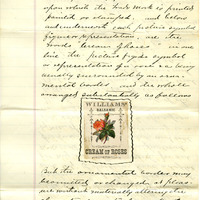 upon which the trade mark is printed
painted or stamped, and below
or underneath such printed symbol
figure or representation, are the
words "Cream of Roses" in one
line the printed figure symbol
or representation of a rose being
usually surrounded by an orna-
mental border, and the whole
arranged substantially as follows
WILLIAMS'
BALSAMIC
CREAM OF ROSES
But the ornamental border may
be omitted or changed at pleas-
ure without materially altering the